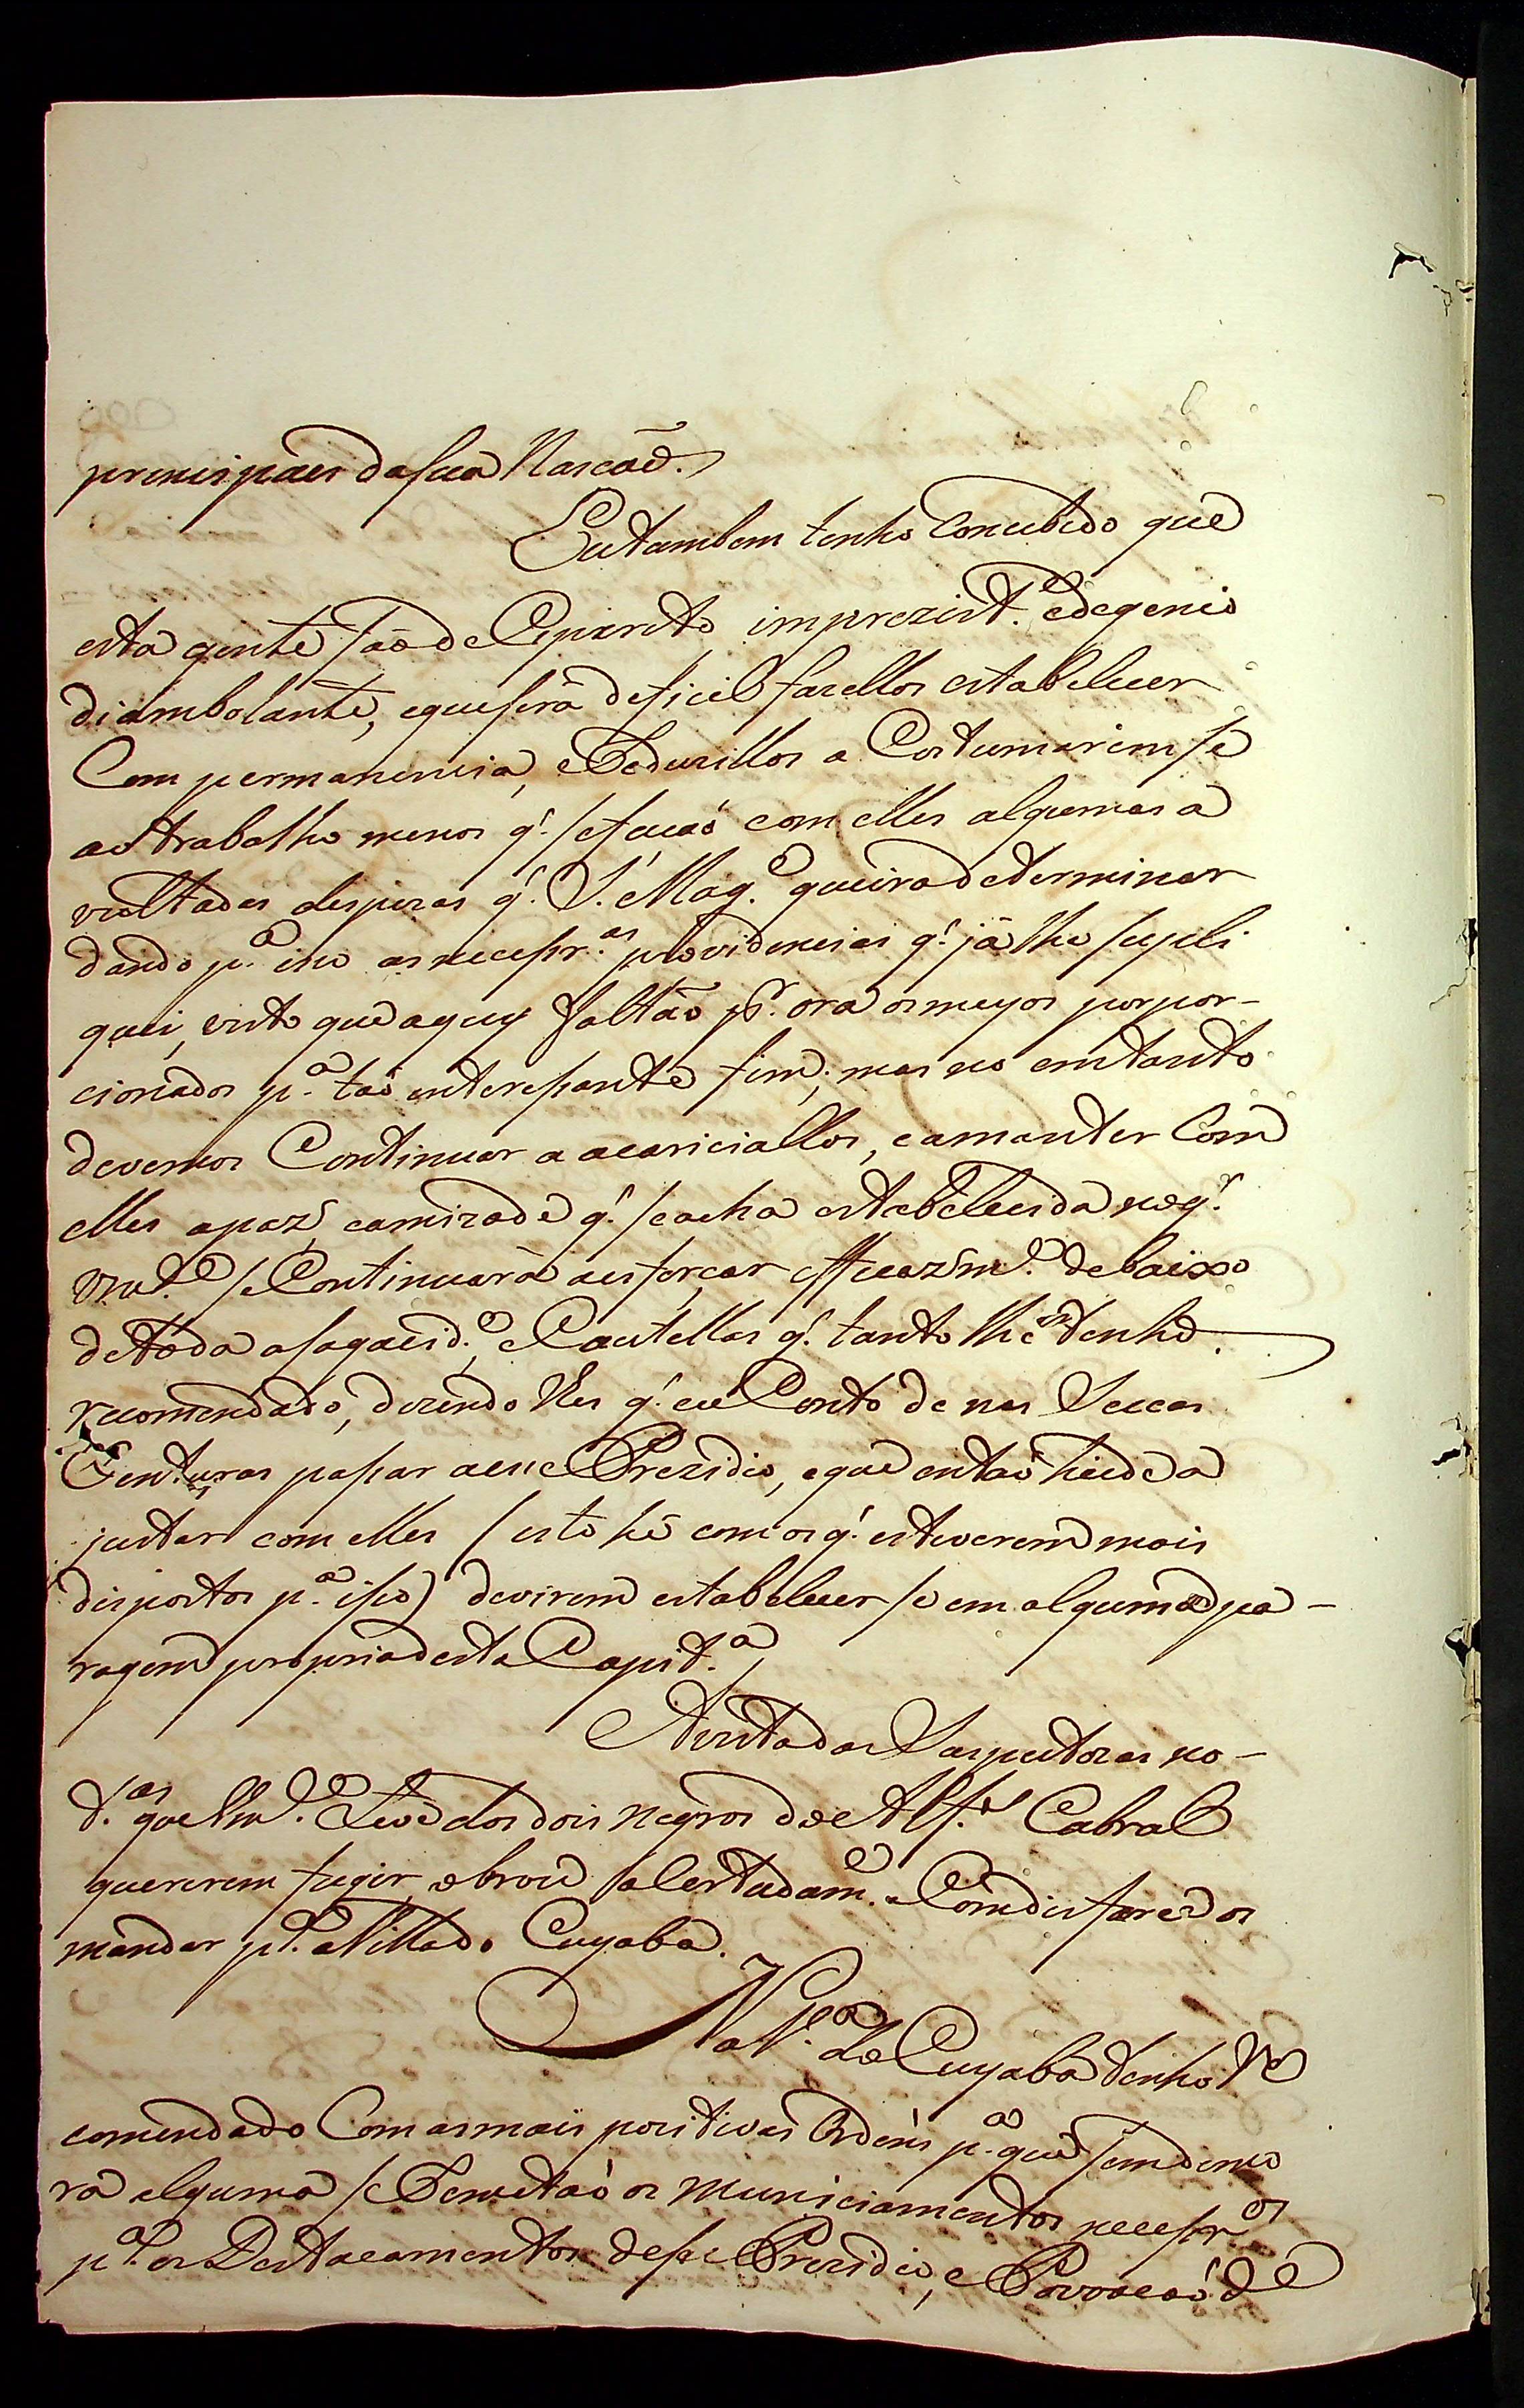 principaes da sua Nascaõ.
Eu tambem tenho Concebido que
esta gente saõ de Espirito imprezist.e e de genio
diambolante, e que será deficil fazellos estabelecer
Com permanencia, e Reduzillos a Costumarem se
ao trabalho menos q.' se facaõ com elles algumas a
vultadas despezas q.' S. Mag.e queira determinar
dando p.a iso as necessr.as providencias q.' já lhe supli
quei, visto que aquy faltaõ p.r ora os meyos porpor-
cionados p.a taõ enteressante fim; mas no emtanto
devemos Continuar a acariciallos, e a manter Com
elles a paz, e amizade q.' se acha estabelecida no q.'
Vm.ce se Continuará a esforçar efficazm.e debaixo
de toda a sagacid.e, e Cautellas q.' tanto lhe tenho
recomendado, dizendo lhes q.' eu Conto de nas Seccas
fucturas passar a esse Prezidio, e que entaõ heide a
justar com elles (isto hé com os q.' estiverem mais
dispostos p.a isso) devirem estabelecer se em alguma pa-
ragem propria desta Capit.a
A vista das Suspeitozas no-
t.as que Vm.ce teve dos dois negros do Alf.s Cabral
quererem fugir, obrou acertadam.e e Com disfarce dos
mandar p.a a Villa do Cuyabá.
Na V.a do Cuyabá tenho Re
comendado Com as mais pozitivas Ordens p.a que sem demo
ra alguma se Remetaõ os Municiamentos necessr.os
p.a os Destacamentos desse Prezidio, e Povoacaõ de